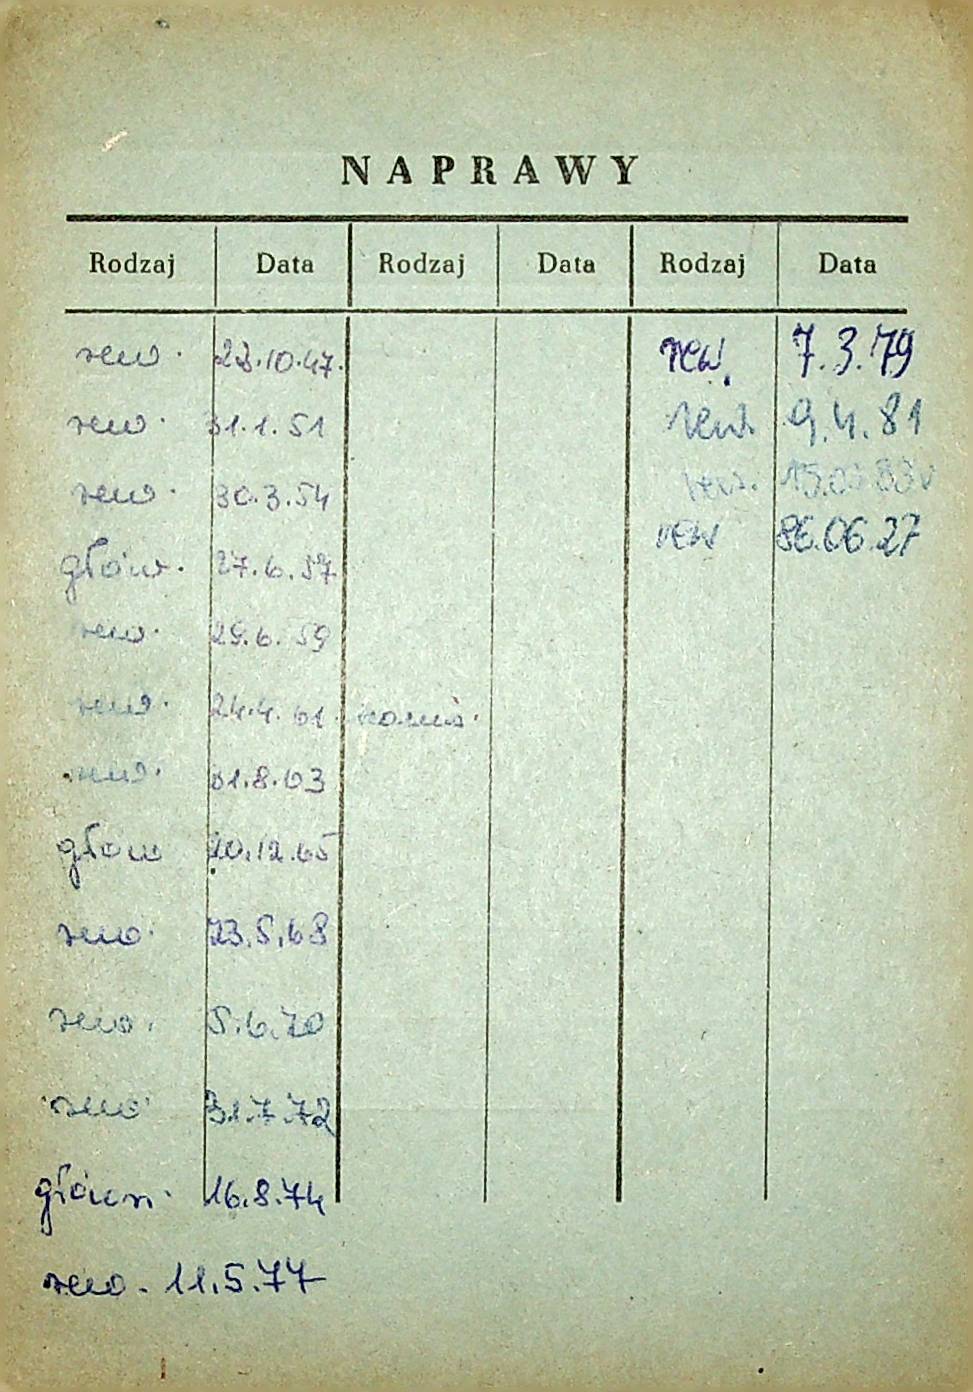 NAPRAWY
Rodzaj Data Rodzaj Data Rodzaj Data
rew. 23.10.47. rew. 7.3.79
rew. 31.1.51 rew. 9.4.81
rew. 30.3.54 rew.
rew 86.06.27
główn. 27.6.57
rew. 29.6.59
rew. 24.4.61.
rew. 31.8.63
główn 20.12.65
rew. 23.5.68
rew. 5.6.70
rew. 31.7.72
główn. 16.8.74
rew. 11.5.77